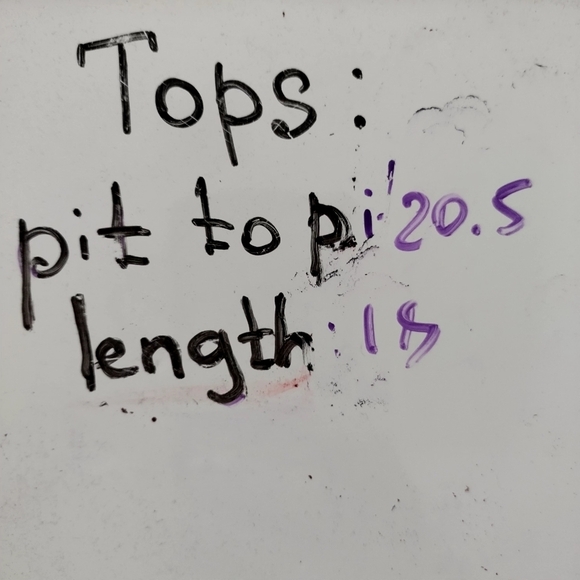 Tops:
pit to pi' 20.5
length: 18